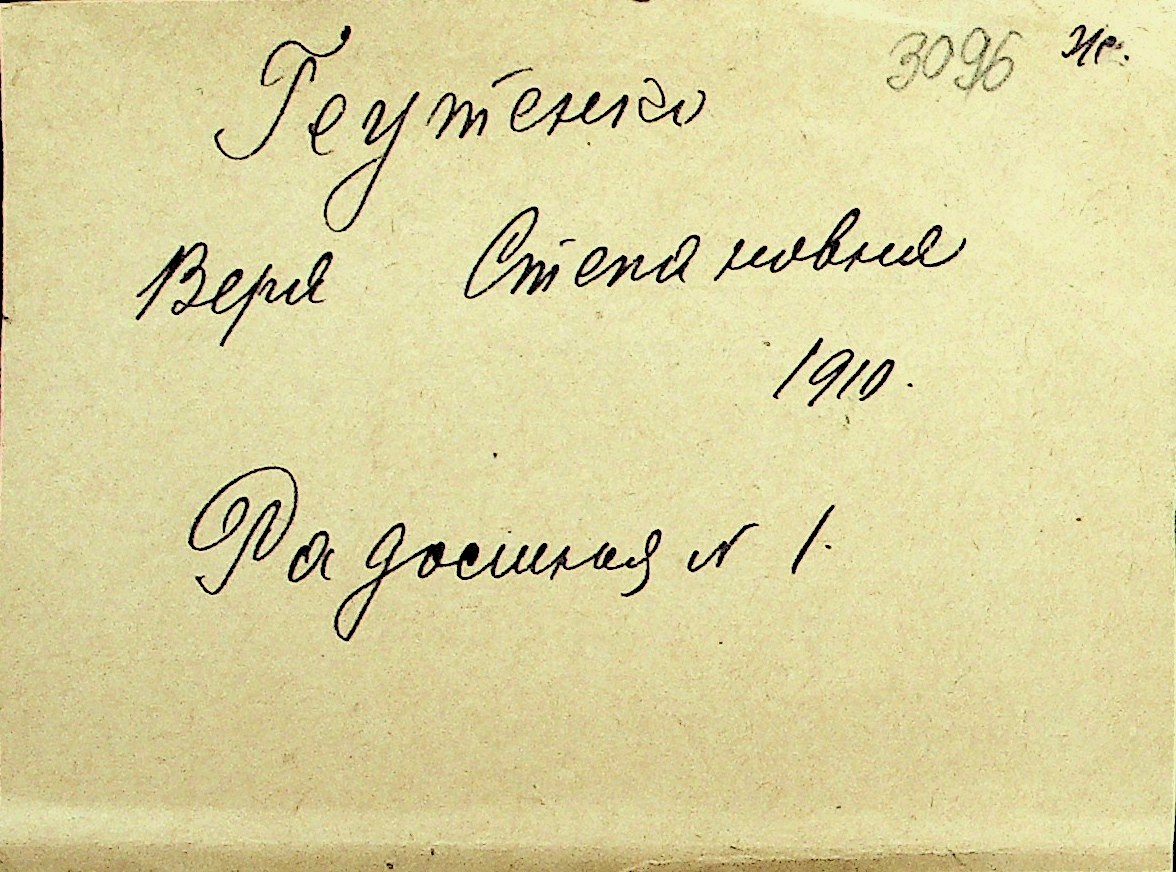 3096 Же.
Геутенко
Вера Степановна
1910.
Радостная N 1.